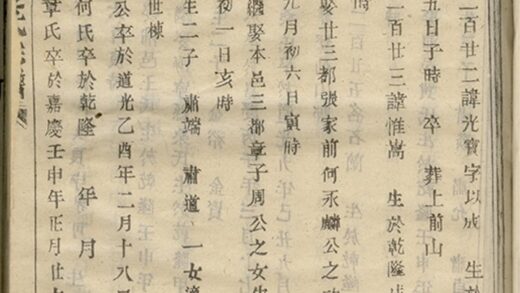 一百廿二諱光寶字以成 生於
五日子時 卒 葬上前山
一百廿三諱惟嵩 生於乾隆
時
娶廿三都張家前何永麟公之
九月初六日寅時
繼娶本邑三都章子周公之女生
初一日亥時
生二子 肅端 肅道 一女
世棟
公卒於道光乙酉年二月十八
何氏卒於乾隆 年 月
章氏卒於嘉慶壬申年正月廿